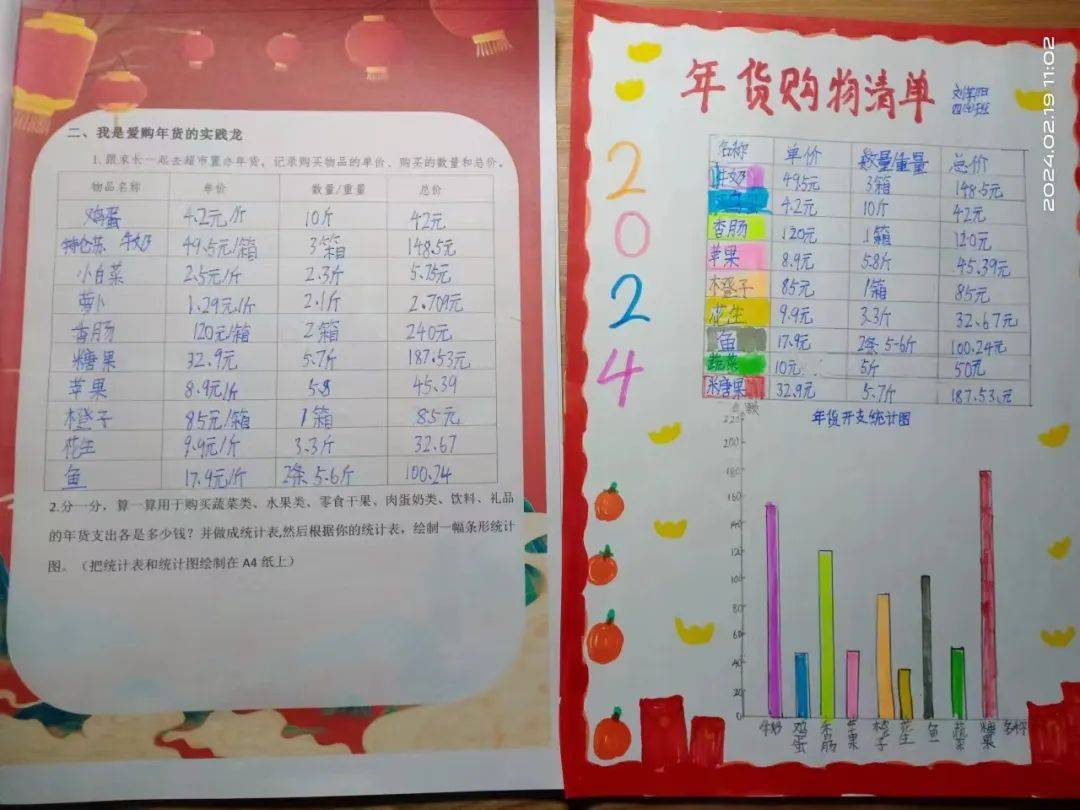 二、我是爱购年货的实践龙
1.跟家长一起去超市置办年货，记录购买物品的单价、购买的数量和总价。
物品名称 单价 数量/重量 总价
鸡蛋 4.2元/斤 10斤 42元
特仑苏 牛奶 49.5元/箱 3箱 148.5元
小白菜 2.5元/斤 2.3斤 5.75元
萝卜 1.29元/斤 2.1斤 2.709元
香肠 120元/箱 2箱 240元
糖果 32.9元 5.7斤 187.53元
苹果 8.9元/斤 5.8 45.39
橙子 85元/箱 1箱 85元
花生 9.9元/斤 3.3斤 32.67
鱼 17.9元/斤 2条 5.6斤 100.24
2.分一分，算一算用于购买蔬菜类、水果类、零食干果、肉蛋奶类、饮料、礼品
的年货支出各是多少钱？并做成统计表,然后根据你的统计表，绘制一幅条形统计
图。（把统计表和统计图绘制在 A4 纸上）
年货购物清单
2024
名称 单价 数量/重量 总价
牛奶 49.5元 3箱 148.5元
4.2元 10斤 42元
香肠 120元 1箱 120元
苹果 8.9元 5.8斤 45.39元
橙子 85元 1箱 85元
花生 9.9元 3.3斤 32.67元
鱼 17.9元 2条 5-6斤 100.24元
蔬菜 10元 5斤 50元
糖果 32.9元 5-7斤 187.53元
年货开支统计图
220
200
180
160
140
120
100
80
60
40
20
0
牛奶 鸡蛋 香肠 苹果 橙子 花生 鱼 蔬菜 糖果 名称
2024.02.19 11:02